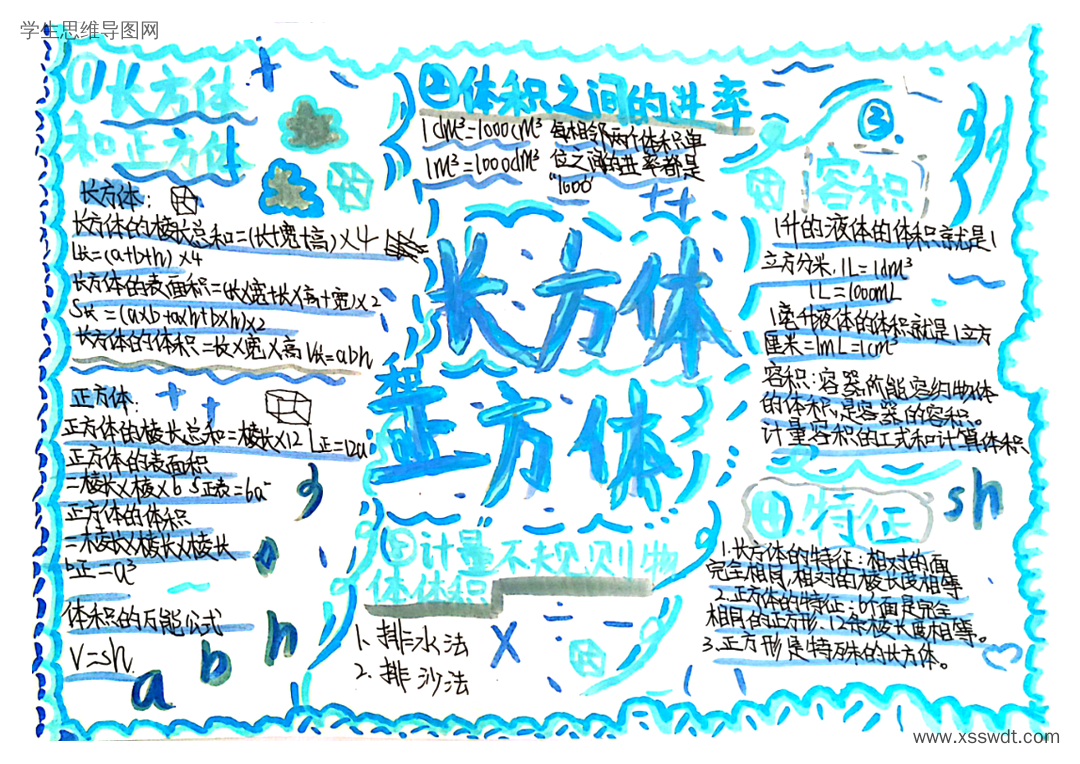 学生思维导图网
①长方体
和正方体
长方体:
长方体的棱长总和=(长+宽+高)×4
L长=(a+b+h)×4
长方体的表面积=(长×宽+长×高+宽)×2
S长=(a×b+a×h+b×h)×2
长方体的体积=长×宽×高 V长=abh
正方体:
正方体的棱长总和=棱长×12 L正=12a
正方体的表面积
=棱长×棱×6 S正表=6a²
正方体的体积
=棱长×棱长×棱长
正=a³
体积的万能公式
V=sh
a b h a
②体积之间的进率
1dm³=1000cm³ 每相邻两个体积单
1m³=1000dm³ 位之间的进率都是
"1000"
长方体
和
正方体
⑤计量"不规则"物
体体积
1、排水法
2、排沙法
③.
容积
1升的液体的体积就是1
立方分米,1L=1dm³
1L=1000mL
1毫升液体的体积就是1立方
厘米=1mL=1cm³
容积:容器所能容纳物体
的体积,是容器的容积。
计量容积的工式和计算体积
sh
④.特征
1.长方体的特征:相对的面
完全相同,相对的棱长度相等
2.正方体的特征:6个面是完全
相同的正方形,12条棱长度相等。
3.正方形是特殊的长方体。
www.xsswdt.com